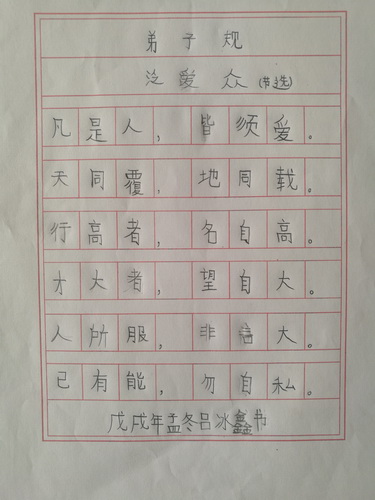 弟子规
泛爱众(节选)
凡是人,皆须爱。
天同覆,地同载。
行高者,名自高。
才大者,望自大。
人所服,非言大。
已有能,勿自私。
戊戌年孟冬吕冰鑫书